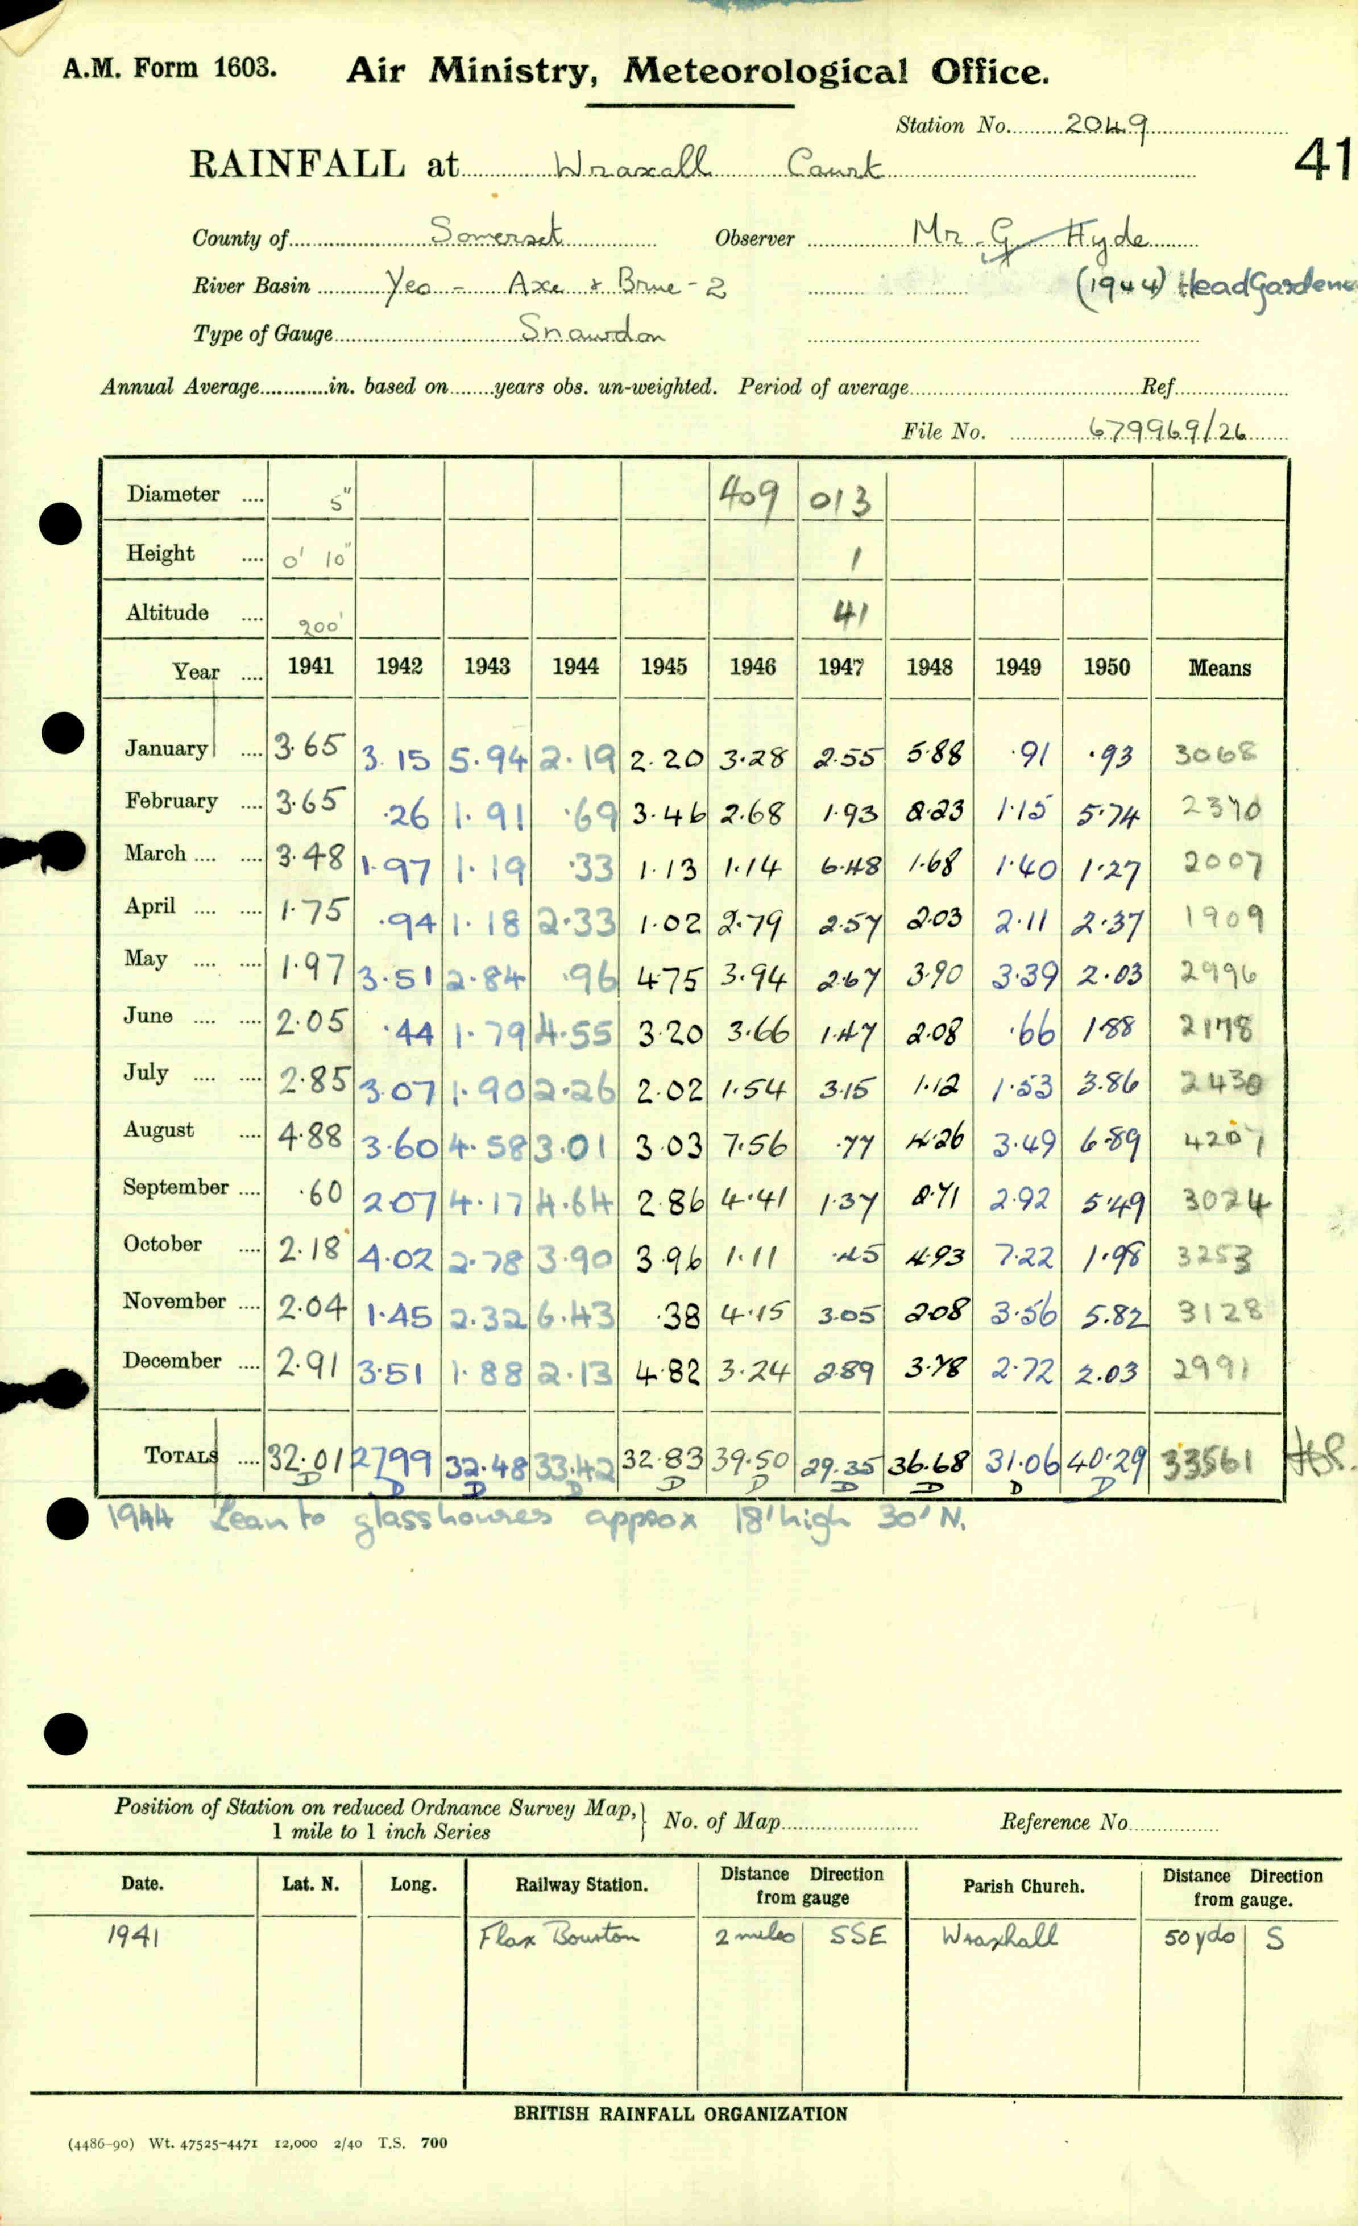 A.M. Form 1603. Air Ministry, Meteorological Office.
Station No. 2049
41
RAINFALL at Wraxall Court
County of Somerset Observer Mr. G Hyde
River Basin Yeo - Axe & Brue - 2 (1944) Head Gardener
Type of Gauge Snowdon
Annual Average in. based on years obs. un-weighted. Period of average Ref
File No. 679969/26
Diameter 5" 409 013
Height 0' 10" 1
Altitude 200' 41
Year 1941 1942 1943 1944 1945 1946 1947 1948 1949 1950 Means
January 3.65 3.15 5.94 2.19 2.20 3.28 2.55 5.88 .91 .93 3068
February 3.65 .26 1.91 .69 3.46 2.68 1.93 2.23 1.15 5.74 2370
March 3.48 1.97 1.19 .33 1.13 1.14 6.48 1.68 1.40 1.27 2007
April 1.75 .94 1.18 2.33 1.02 2.79 2.57 2.03 2.11 2.37 1909
May 1.97 3.51 2.84 .96 4.75 3.94 2.67 3.90 3.39 2.03 2996
June 2.05 .44 1.79 4.55 3.20 3.66 1.47 2.08 .66 1.88 2178
July 2.85 3.07 1.90 2.26 2.02 1.54 3.15 1.12 1.53 3.86 2430
August 4.88 3.60 4.58 3.01 3.03 7.56 .77 4.26 3.49 6.89 4207
September .60 2.07 4.17 4.64 2.86 4.41 1.37 2.71 2.92 5.49 3024
October 2.18 4.02 2.78 3.90 3.96 1.11 .45 4.93 7.22 1.98 3253
November 2.04 1.45 2.32 6.43 .38 4.15 3.05 2.08 3.56 5.82 3128
December 2.91 3.51 1.88 2.13 4.82 3.24 2.89 3.78 2.72 2.03 2991
TOTALS 32.01 27.99 32.48 33.42 32.83 39.50 29.35 36.68 31.06 40.29 33561
D D D D D D D D D D
1944 Lean to glasshouses approx 18' high 30' N.
Position of Station on reduced Ordnance Survey Map, 1 mile to 1 inch Series No. of Map Reference No
Date. Lat. N. Long. Railway Station. Distance Direction from gauge Parish Church. Distance Direction from gauge.
1941 Flax Bourton 2 miles SSE Wraxhall 50 yds S
BRITISH RAINFALL ORGANIZATION
(4486-90) Wt. 47525-4471 12,000 2/40 T.S. 700